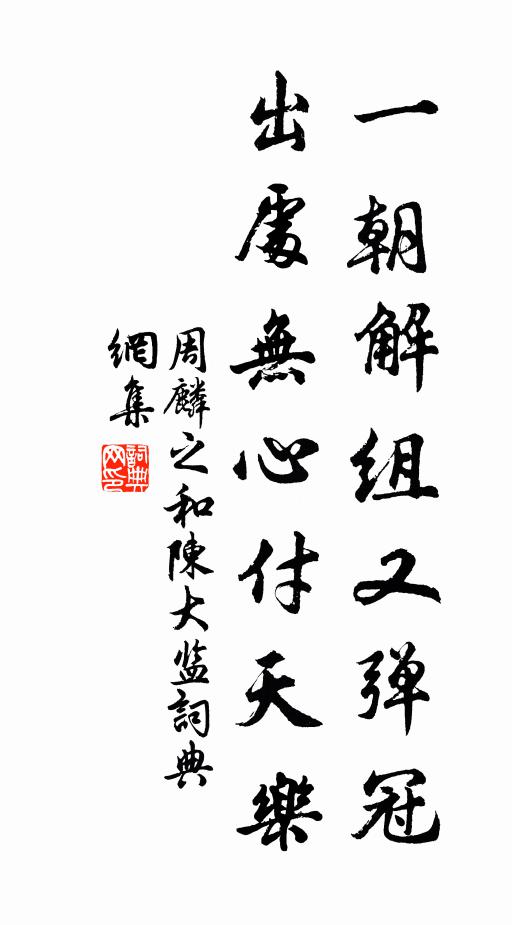 一朝解组又弹冠
出處無心付天樂
周麟之和陳大监詞典
網集
詞典网印